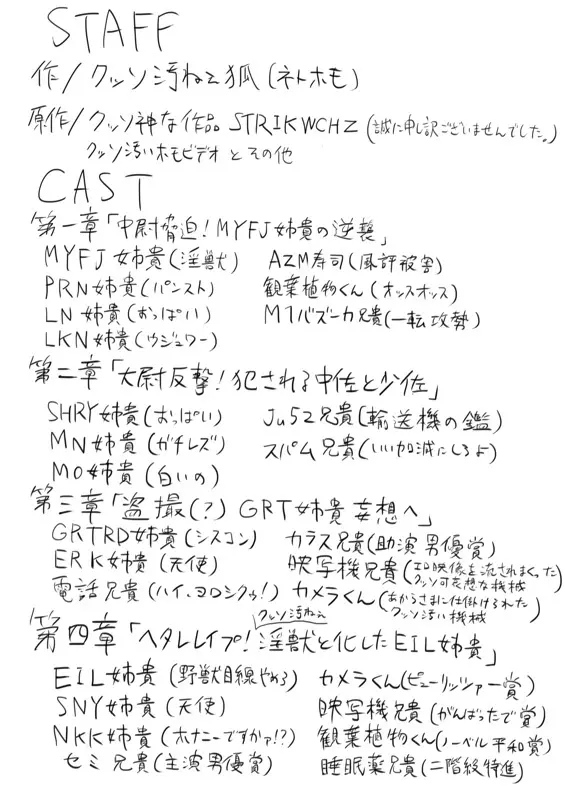 STAFF
作/クッソ汚ねえ狐(ネトホモ)
原作/クッソ神な作品 STRIKWCHZ(誠に申し訳ございませんでした。)
クッソ汚いホモビデオ とその他
CAST
第一章「中尉脅迫!MYFJ姉貴の逆襲」
MYFJ姉貴(淫獣) AZM寿司(風評被害)
PRN姉貴(パンスト) 観葉植物くん(オッスオッス)
LN姉貴(おっぱい) M1バズーカ兄貴(一転攻勢)
LKN姉貴(ウジュワー)
第二章「大尉反撃!犯される中佐と少佐」
SHRY姉貴(おっぱい) Ju52兄貴(輸送機の鑑)
MN姉貴(ガチレズ) スパム兄貴(いい加減にしろよ)
MO姉貴(白いの)
第三章「盗撮(?)GRT姉貴 妄想へ」
GRTRD姉貴(シスコン) カラス兄貴(助演男優賞)
ERK姉貴(天使) 映写機兄貴(エロ映像を流されまくった
クッソ可哀想な機械
電話兄貴(ハイ、ヨロシクゥ!) カメラくん(あからさまに仕掛けられた
クッソ汚い機械
クッソ汚ねえ
第四章「ヘタレレイプ!淫獣と化したEIL姉貴」
EIL姉貴(野獣目線やめろ) カメラくん(ピューリッツァー賞)
SNY姉貴(天使) 映写機兄貴(がんばったで賞)
NKK姉貴(オナニーですかァ!?) 観葉植物くん(ノーベル平和賞)
セミ兄貴(主演男優賞) 睡眠薬兄貴(二階級特進)